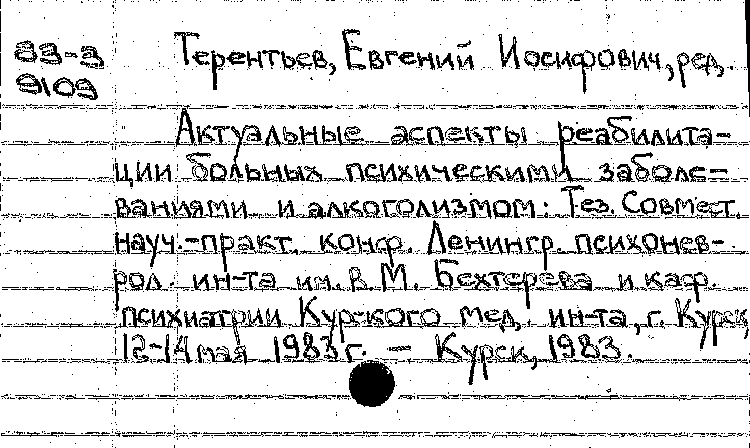 83-3
9109
Терентьев, Евгений Иосифович, ред.
Актуальные аспекты реабилита-
ции больных психическими заболе-
ваниями и алкоголизмом: Тез. Совмест.
науч.-практ. конф. Ленингр. психонев-
рол. ин-та им. В. М. Бехтерева и каф.
психиатрии Курского мед. ин-та, г. Курск,
12-14 мая 1983 г. – Курск, 1983.